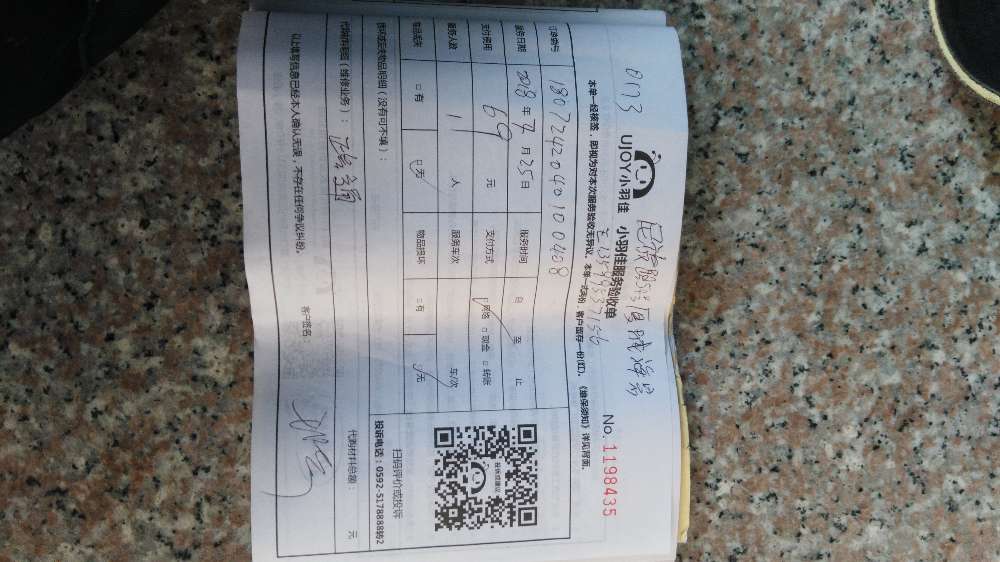 0113
UJOY小羽佳 小羽佳服务验收单
No. 1198435
本单一经核签,即视为对本次服务验收无异议。本单一式两份 客户留存一份(红)。《维保须知》详见背面。
订单编号 1807242040100408
服务日期 2018年7月25日 服务时间 自 至 止
支付费用 69 元 支付方式 ☑网络 □现金 □转账
服务人数 1 人 服务车次 车/次
物品丢失 □有 ☑无 物品损坏 □有 ☑无
损坏或丢失物品明细(没有可不填):
代购材料明细(维修业务):
代购材料总额: 元
以上填写信息已经本人确认无误,不存在任何争议纠纷。
客户签名:
投诉或建议
扫码评价或投诉
投诉电话:0592-5178888转2